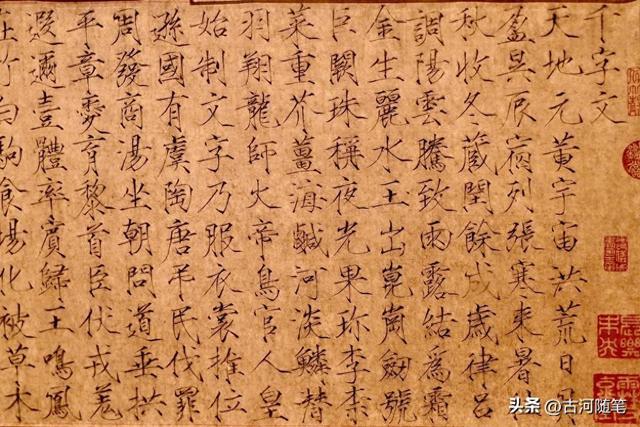 千字文
天地元黃宇宙洪荒日月
盈昃辰宿列張寒來暑往
秋收冬藏閏餘成歲律呂
調陽雲騰致雨露結為霜
金生麗水玉出崑崗劒號
巨闕珠稱夜光果珎李柰
菜重芥薑海鹹河淡鱗潛
羽翔龍師火帝鳥官人皇
始制文字乃服衣裳推位
遜國有虞陶唐弔民伐罪
周發商湯坐朝問道垂拱
平章愛育黎首臣伏戎羌
遐邇壹體率賓歸王鳴鳳
在竹白駒食場化被草木
头条 @古河随笔